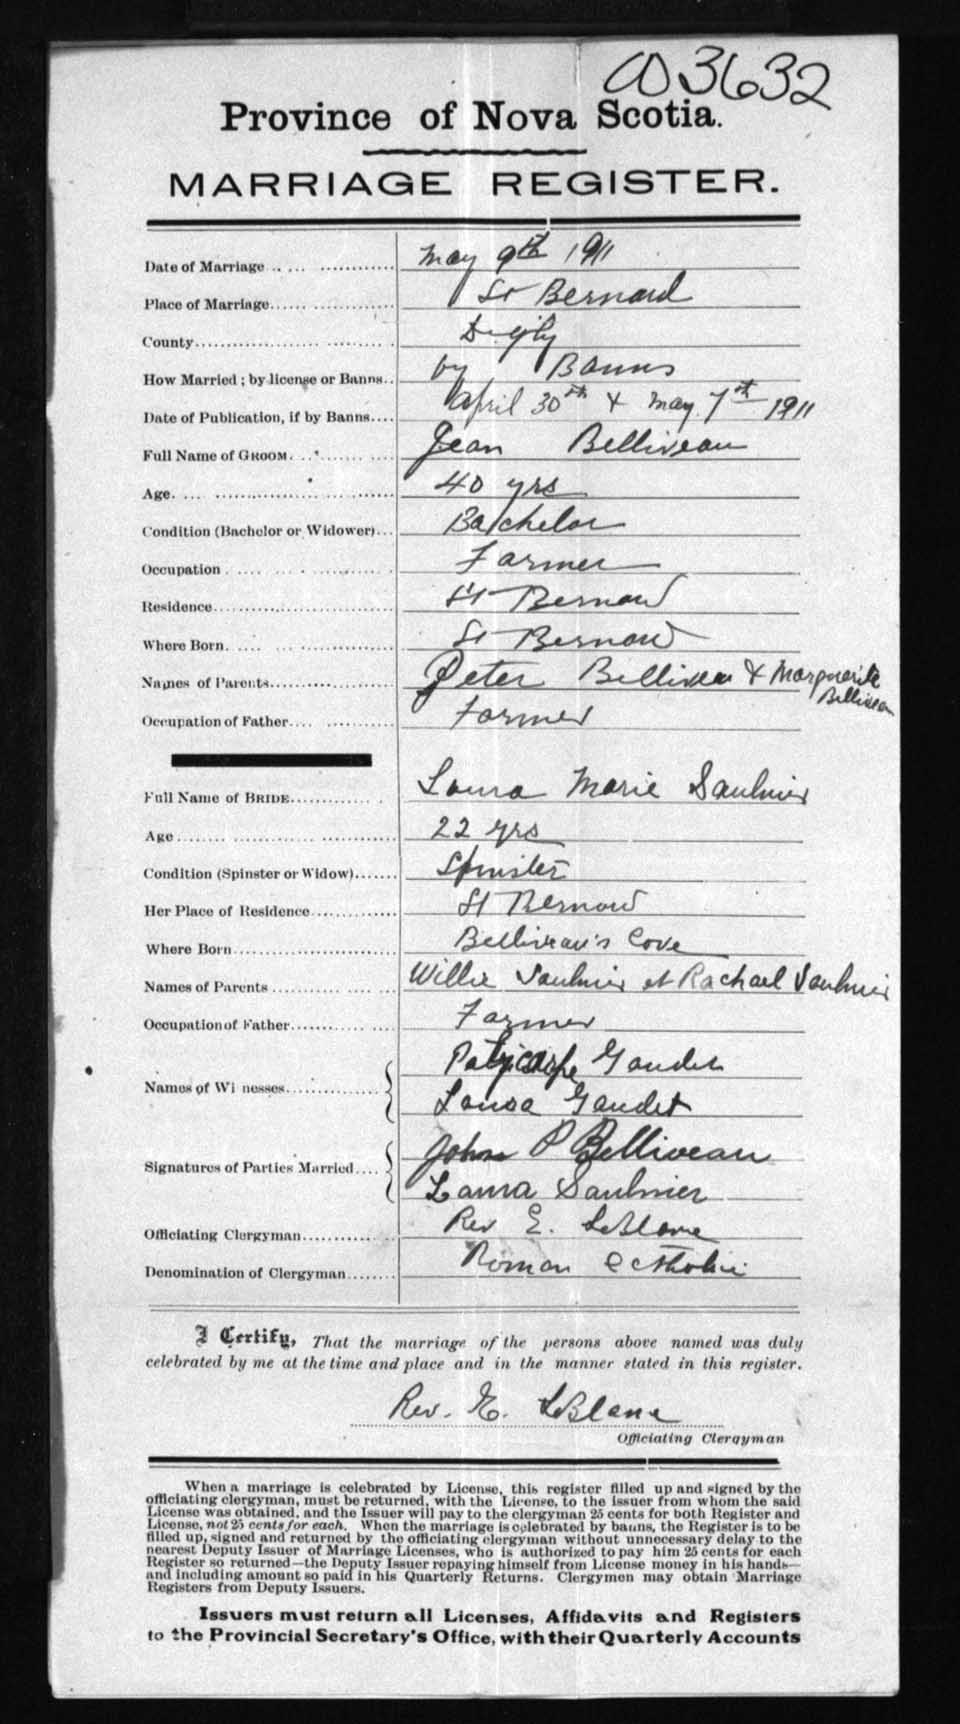 003632
Province of Nova Scotia.
MARRIAGE REGISTER.
Date of Marriage May 9th 1911
Place of Marriage St Bernard
County Digby
How Married; by license or Banns by Banns
Date of Publication, if by Banns April 30th & May 7th 1911
Full Name of GROOM Jean Belliveau
Age 40 yrs
Condition (Bachelor or Widower) Bachelor
Occupation Farmer
Residence St Bernard
Where Born St Bernard
Names of Parents Peter Belliveau & Marguerite
Belliveau
Occupation of Father Farmer
Full Name of BRIDE Laura Marie Saulnier
Age 22 yrs
Condition (Spinster or Widow) Spinster
Her Place of Residence St Bernard
Where Born Belliveau's Cove
Names of Parents Willie Saulnier et Rachael Saulnier
Occupation of Father Farmer
Polycarpe Gaudet
Names of Wi nesses
Louisa Gaudet
John P Belliveau
Signatures of Parties Married
Laura Saulnier
Officiating Clergyman Rev E. LeBlanc
Denomination of Clergyman Roman Catholic
I Certify, That the marriage of the persons above named was duly
celebrated by me at the time and place and in the manner stated in this register.
Rev. E. LeBlanc
Officiating Clergyman
When a marriage is celebrated by License, this register filled up and signed by the
officiating clergyman, must be returned, with the License, to the issuer from whom the said
License was obtained, and the Issuer will pay to the clergyman 25 cents for both Register and
License, not 25 cents for each. When the marriage is celebrated by banns, the Register is to be
filled up, signed and returned by the officiating clergyman without unnecessary delay to the
nearest Deputy Issuer of Marriage Licenses, who is authorized to pay him 25 cents for each
Register so returned—the Deputy Issuer repaying himself from License money in his hands—
and including amount so paid in his Quarterly Returns. Clergymen may obtain Marriage
Registers from Deputy Issuers.
Issuers must return all Licenses, Affidavits and Registers
to the Provincial Secretary's Office, with their Quarterly Accounts